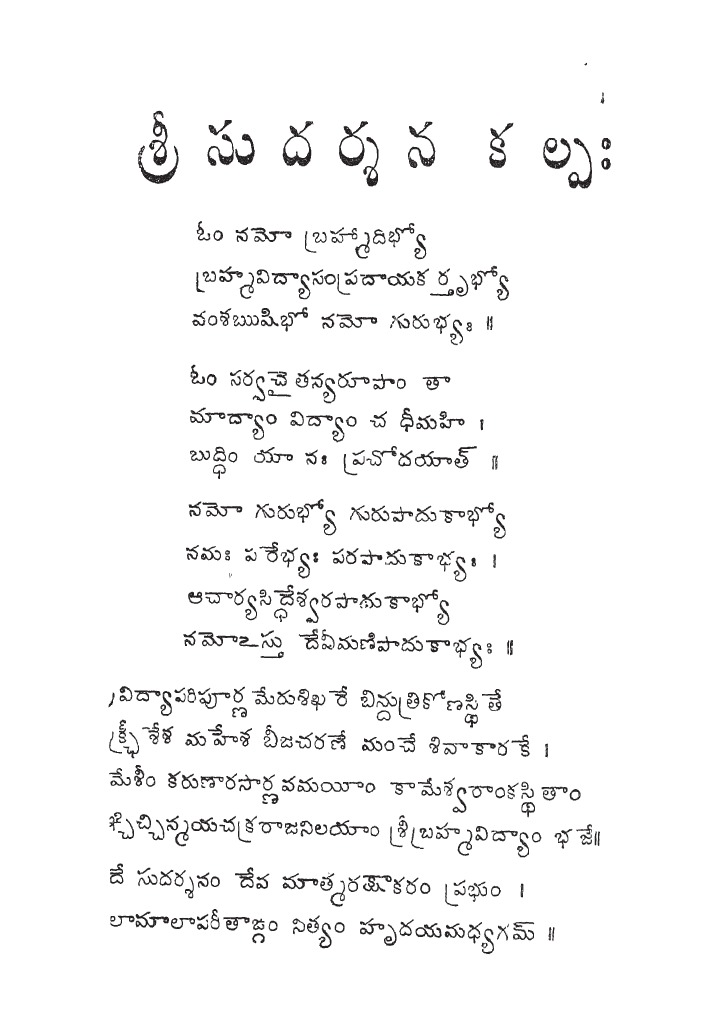 శ్రీ సుదర్శన కల్పః
ఓం నమో బ్రహ్మాదిభ్యో
బ్రహ్మవిద్యాసంప్రదాయకర్తృభ్యో
వంశఋషిభో నమో గురుభ్యః ॥
ఓం సర్వచైతన్యరూపాం తా
మాద్యాం విద్యాం చ ధీమహి ।
బుద్ధిం యా నః ప్రచోదయాత్ ॥
నమో గురుభ్యో గురుపాదుకాభ్యో
నమః పరేభ్యః పరపాదుకాభ్యః ।
ఆచార్యసిద్ధేశ్వరపాదుకాభ్యో
నమోఽస్తు దేవీమణిపాదుకాభ్యః ॥
విద్యాపరిపూర్ణ మేరుశిఖరే బిన్దుత్రికోణస్థితే
శేళ మహేశ బీజచరణే మంచే శివాకారకే ।
మేశీం కరుణారసార్ణవమయీం కామేశ్వరాంకస్థితాం
చ్చిన్మయచక్రరాజనిలయాం శ్రీబ్రహ్మవిద్యాం భజే॥
దే సుదర్శనం దేవ మాత్మరతౌకరం ప్రభుం ।
లామాలాపరీతాఙ్గం నిత్యం హృదయమధ్యగమ్ ॥